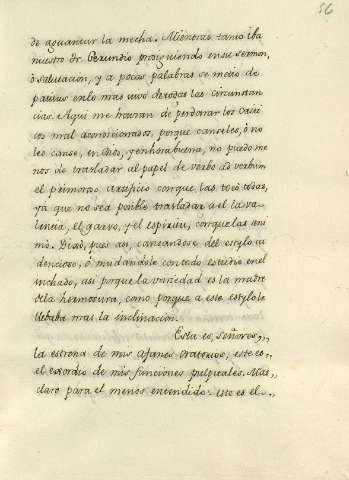 56
de aguantar la mecha. Mientras tanto iba
nuestro Fr. Gerundio prosiguiendo en su sermon,
ò salutacion, y a pocas palabras se metio de
patitas en lo mas vivo de todas las circunstan
cias. Aqui me havran de perdonar los Criti
cos mal acondicionados, porque canseles, ò no
les canse, en Dios, y en hora buena, no puedo me
nos de trasladar al papel de verbo ad verbum
el primoroso artificio con que las tocò todas,
yà que no sea posible trasladar à el la va
lencia, el garvo, y el espiritu, con que las ani
mò. Dixo, pues asi, cansandose del estylo ca
dencioso, ò mudandole con todo estudio en el
inchado, asi porque la variedad es la madre
de la hermosura, como porque a este estylo le
llebaba mas la inclinacion.
Esta es, Señores,,
la estrena de mis afanes oratorios, este es,,
el exordio de mis funciones pulpitales. Mas,,
claro para el menos entendido: este es el,,